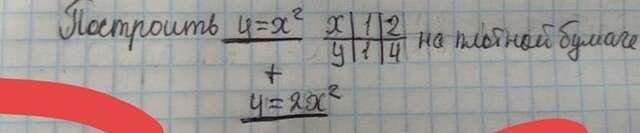 Построить y=x² x|1|2 на плотной бумаге
y|1|4
+
y=2x²